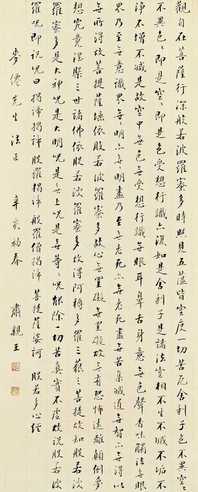 觀自在菩薩行深般若波羅蜜多時照見五蘊皆空度一切苦厄舍利子色不異空空
不異色色即是空空即是色受想行識亦復如是舍利子是諸法空相不生不滅不垢不
淨不增不減是故空中無色無受想行識無眼耳鼻舌身意無色聲香味觸法無眼
界乃至無意識界無無明亦無無明盡乃至無老死亦無老死盡無苦集滅道無智亦無得以
無所得故菩提薩埵依般若波羅蜜多故心無罣礙無罣礙故無有恐怖遠離顛倒夢
想究竟涅槃三世諸佛依般若波羅蜜多故得阿耨多羅三藐三菩提故知般若波
羅蜜多是大神咒是大明咒是無上咒是無等等咒能除一切苦真實不虛故說般若波
羅蜜多咒即說咒曰揭諦揭諦般羅揭諦般羅僧揭諦菩提薩婆訶 般若多心經
先生法正 辛亥初春 肅親王